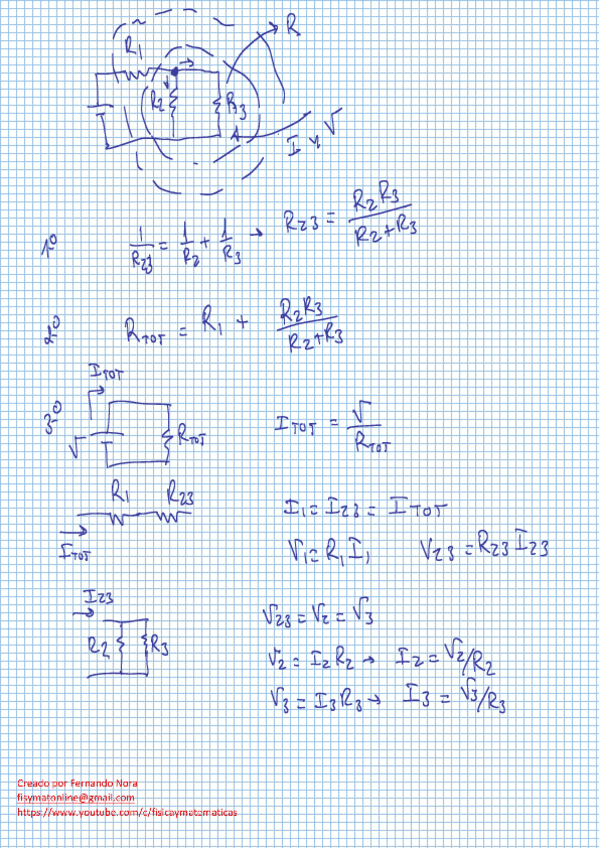 R1
R
R2
R3
I y V
1º
1/R23 = 1/R2 + 1/R3 → R23 = R2R3/R2+R3
2º
RTOT = R1 + R2R3/R2+R3
ITOT
3º
V
RTOT
ITOT = V/RTOT
R1 R23
ITOT
I1 = I23 = ITOT
V1 = R1 I1 V23 = R23 I23
I23
R2 R3
V23 = V2 = V3
V2 = I2 R2 → I2 = V2/R2
V3 = I3 R3 → I3 = V3/R3
Creado por Fernando Nora
fisymatonline@gmail.com
https://www.youtube.com/c/fisicaymatematicas